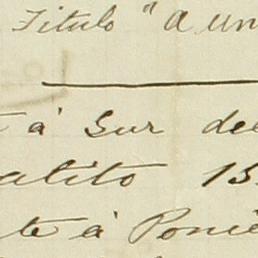 Titulo " a un
à Sur del
alito 15
te à Ponie